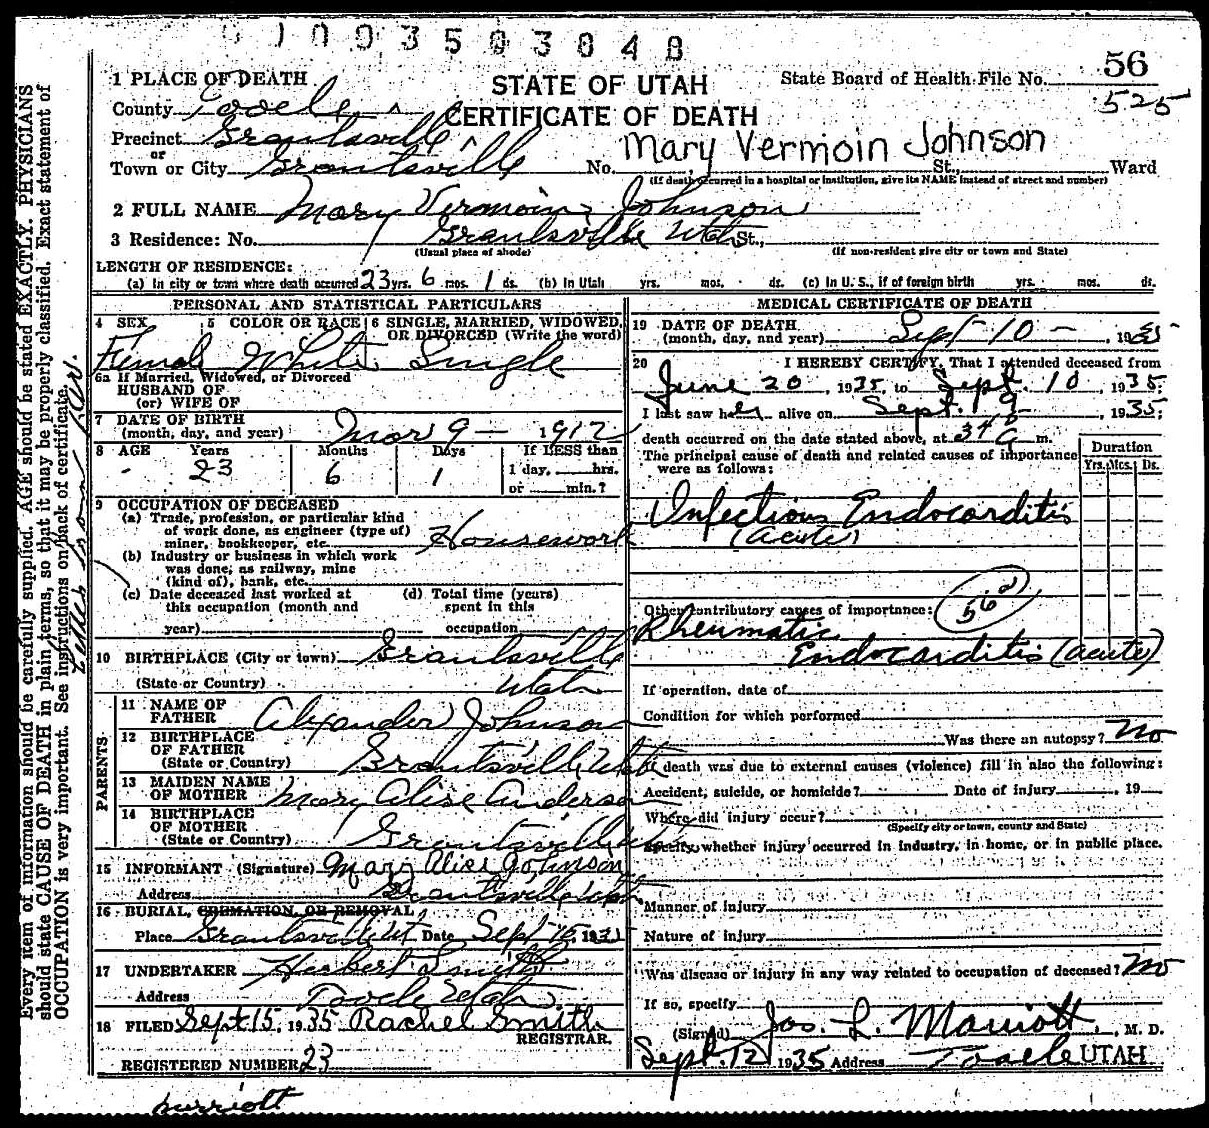 0 1 0 9 3 5 0 3 0 4 8
1 PLACE OF DEATH
STATE OF UTAH
State Board of Health File No. 56
County Tooele
CERTIFICATE OF DEATH
525
Precinct Grantsville
or
Mary Vermoin Johnson
Town or City Grantsville No. St., Ward
(If death occurred in a hospital or institution, give its NAME instead of street and number)
2 FULL NAME Mary Vermoin Johnson
3 Residence: No. Grantsville Utah St.,
(Usual place of abode) (If non-resident give city or town and State)
LENGTH OF RESIDENCE:
(a) In city or town where death occurred 23 yrs. 6 mos. 1 ds. (b) In Utah yrs. mos. ds. (c) In U. S., if of foreign birth yrs. mos. ds.
PERSONAL AND STATISTICAL PARTICULARS
4 SEX 5 COLOR OR RACE 6 SINGLE, MARRIED, WIDOWED, OR DIVORCED (Write the word)
Female White Single
6a If Married, Widowed, or Divorced
HUSBAND OF
(or) WIFE OF
7 DATE OF BIRTH
(month, day, and year) Mar 9 - 1912
8 AGE Years Months Days If LESS than
23 6 1 1 day, hrs.
or min.?
9 OCCUPATION OF DECEASED
(a) Trade, profession, or particular kind
of work done, as engineer (type of)
miner, bookkeeper, etc. Housework
(b) Industry or business in which work
was done, as railway, mine
(kind of), bank, etc.
(c) Date deceased last worked at (d) Total time (years)
this occupation (month and spent in this
year) occupation
10 BIRTHPLACE (City or town) Grantsville
(State or Country) Utah
PARENTS
11 NAME OF
FATHER Alexander Johnson
12 BIRTHPLACE
OF FATHER
(State or Country) Grantsville Utah
13 MAIDEN NAME
OF MOTHER Mary Alise Anderson
14 BIRTHPLACE
OF MOTHER
(State or Country) Grantsville Ut
15 INFORMANT (Signature) Mary Alice Johnson
Address Grantsville Utah
16 BURIAL, CREMATION, OR REMOVAL
Place Grantsville Ut Date Sept 15, 193
17 UNDERTAKER Herbert Smith
Address Tooele Utah
18 FILED Sept 15, 1935 Rachel Smith
REGISTRAR.
REGISTERED NUMBER 23
MEDICAL CERTIFICATE OF DEATH
19 DATE OF DEATH
(month, day, and year) Sept 10 - , 19
20 I HEREBY CERTIFY, That I attended deceased from
June 20 , 1935 to Sept. 10 , 1935.
I last saw her alive on Sept. 9 , 1935;
death occurred on the date stated above, at m.
The principal cause of death and related causes of importance
were as follows:
Duration
Yrs. Mos. Ds.
Infectious Endocarditis
(acute)
Other contributory causes of importance:
Rheumatic
Endocarditis (acute)
If operation, date of
Condition for which performed
Was there an autopsy? No
If death was due to external causes (violence) fill in also the following:
Accident, suicide, or homicide? Date of injury , 19
Where did injury occur?
(Specify city or town, county and State)
Specify whether injury occurred in industry, in home, or in public place.
Manner of injury
Nature of injury
Was disease or injury in any way related to occupation of deceased? No
If so, specify
(Signed) Jos. L. Marriott , M. D.
Sept. 12, 1935 Address Tooele UTAH
Every item of information should be carefully supplied. AGE should be stated EXACTLY. PHYSICIANS
should state CAUSE OF DEATH in plain terms, so that it may be properly classified. Exact statement of
OCCUPATION is very important. See instructions on back of certificate.